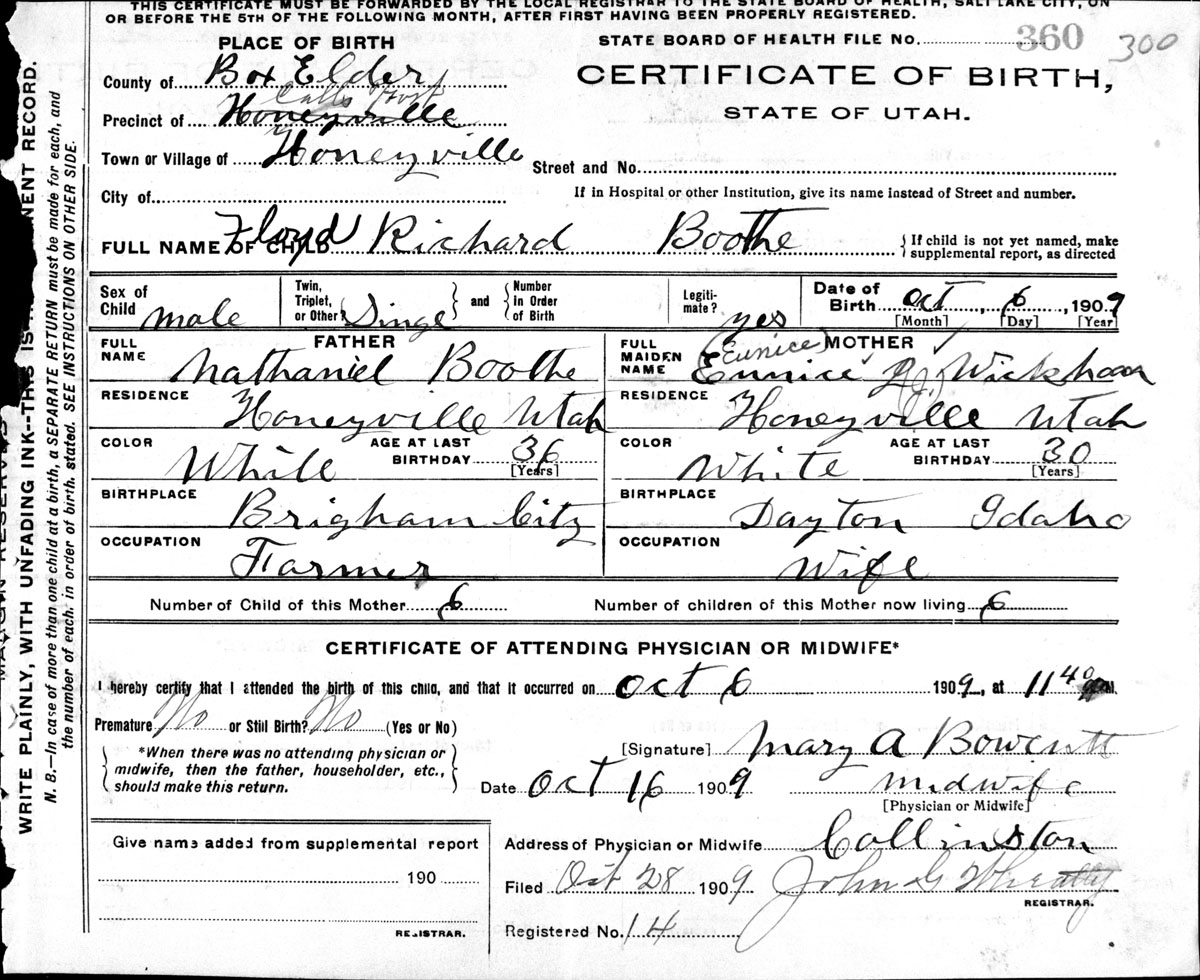 THIS CERTIFICATE MUST BE FORWARDED BY THE LOCAL REGISTRAR TO THE STATE BOARD OF HEALTH, SALT LAKE CITY, ON
OR BEFORE THE 5TH OF THE FOLLOWING MONTH, AFTER FIRST HAVING BEEN PROPERLY REGISTERED.
PLACE OF BIRTH
STATE BOARD OF HEALTH FILE NO. 360 300
County of Box Elder
CERTIFICATE OF BIRTH,
STATE OF UTAH.
Calls Fort
Precinct of Honeyville
Town or Village of Honeyville
Street and No.
City of
If in Hospital or other Institution, give its name instead of Street and number.
FULL NAME OF CHILD Floyd Richard Boothe
{If child is not yet named, make
supplemental report, as directed
Sex of Child male
Twin, Triplet, or Other {Singe} and {Number in Order of Birth
Legiti-mate? yes
Date of Birth Oct, 6, 1909
[Month] [Day] [Year]
FATHER
FULL NAME Nathaniel Boothe
RESIDENCE Honeyville Utah
COLOR White
AGE AT LAST BIRTHDAY 36
[Years]
BIRTHPLACE Brigham City
OCCUPATION Farmer
MOTHER
(Eunice)
FULL MAIDEN NAME Eunice Wickham
RESIDENCE Honeyville Utah
COLOR White
AGE AT LAST BIRTHDAY 30
[Years]
BIRTHPLACE Dayton Idaho
OCCUPATION Wife
Number of Child of this Mother 6
Number of children of this Mother now living 6
CERTIFICATE OF ATTENDING PHYSICIAN OR MIDWIFE*
I hereby certify that I attended the birth of this child, and that it occurred on Oct 6 1909, at 11 40 M.
Premature No or Still Birth? No (Yes or No)
{*When there was no attending physician or
midwife, then the father, householder, etc.,
should make this return.}
[Signature] Mary A Bowcutt
Date Oct 16 1909 Midwife
[Physician or Midwife]
Give name added from supplemental report
190
REGISTRAR.
Address of Physician or Midwife Collinston
Filed Oct 28 1909 John G Wheatley
REGISTRAR.
Registered No. 14
WRITE PLAINLY, WITH UNFADING INK--THIS IS NENT RECORD.
N. B.—In case of more than one child at a birth, a SEPARATE RETURN must be made for each, and
the number of each, in order of birth, stated. SEE INSTRUCTIONS ON OTHER SIDE.